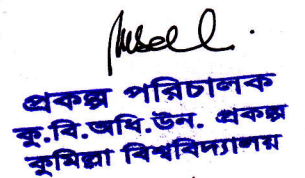 প্রকল্প পরিচালক
কু.বি.অধি.উন. প্রকল্প
কুমিল্লা বিশ্ববিদ্যালয়